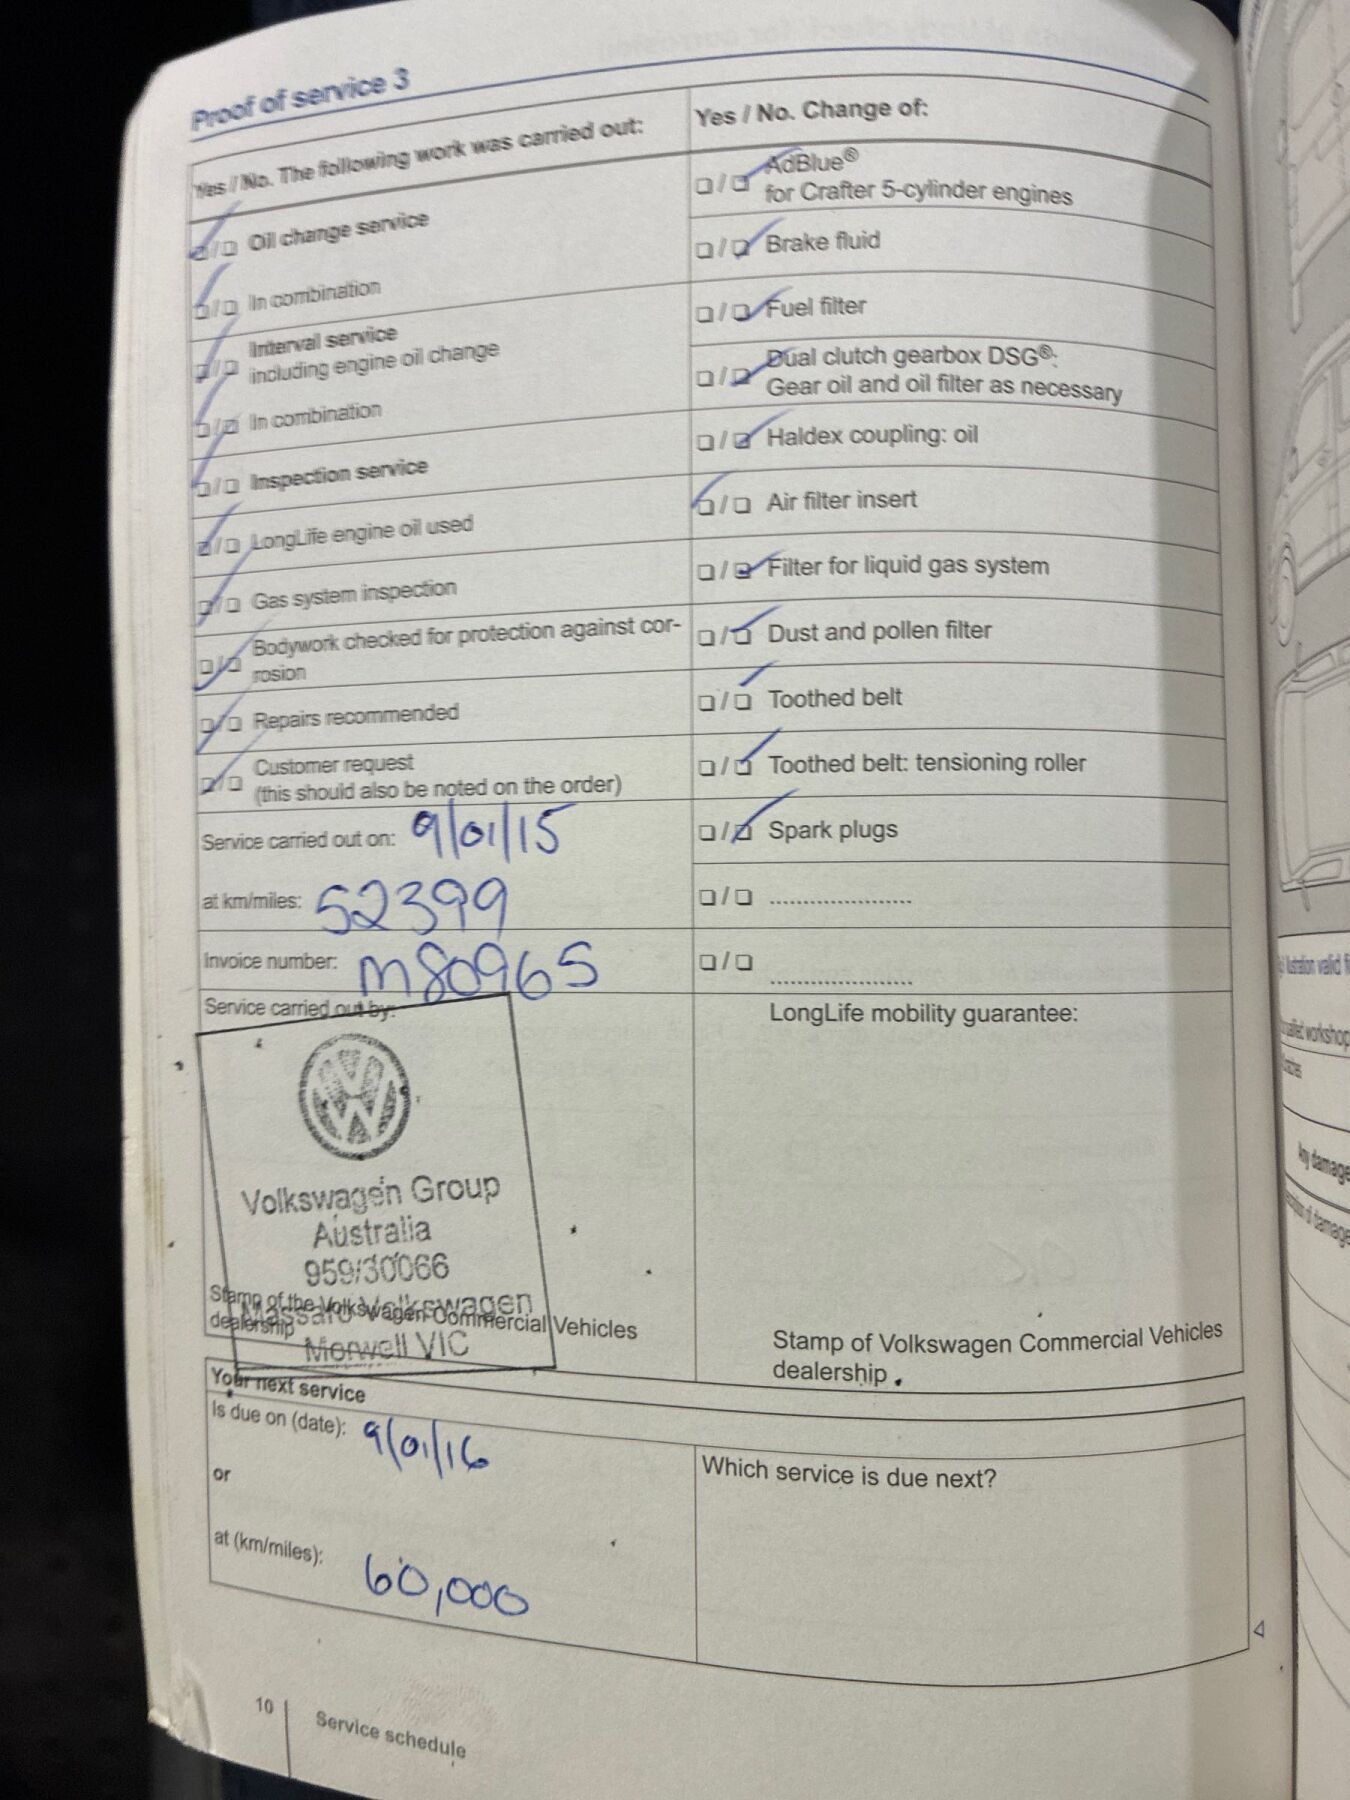 Proof of service 3
Yes / No. The following work was carried out:
❏/❏ Oil change service
❏/❏ In combination
❏/❏ Interval service
including engine oil change
❏/❏ In combination
❏/❏ Inspection service
❏/❏ LongLife engine oil used
❏/❏ Gas system inspection
❏/❏ Bodywork checked for protection against cor-
rosion
❏/❏ Repairs recommended
❏/❏ Customer request
(this should also be noted on the order)
Service carried out on: 9/01/15
at km/miles: 52399
Invoice number: M80965
Service carried out by:
Volkswagen Group
Australia
959/30066
Massaro Volkswagen
Morwell VIC
Stamp of the Volkswagen Commercial Vehicles
dealership
Yes / No. Change of:
❏/❏ AdBlue®
for Crafter 5-cylinder engines
❏/❏ Brake fluid
❏/❏ Fuel filter
❏/❏ Dual clutch gearbox DSG®:
Gear oil and oil filter as necessary
❏/❏ Haldex coupling: oil
❏/❏ Air filter insert
❏/❏ Filter for liquid gas system
❏/❏ Dust and pollen filter
❏/❏ Toothed belt
❏/❏ Toothed belt: tensioning roller
❏/❏ Spark plugs
❏/❏ .....................
❏/❏ .....................
LongLife mobility guarantee:
Stamp of Volkswagen Commercial Vehicles
dealership
Your next service
Is due on (date): 9/01/16
or
at (km/miles): 60,000
Which service is due next?
10
Service schedule
valid
workshop
Any damage
of damage